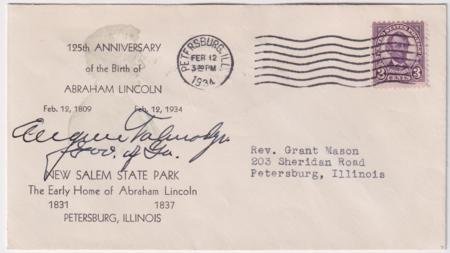 125th ANNIVERSARY
of the Birth of
ABRAHAM LINCOLN
Feb. 12, 1809 Feb. 12, 1934
Eugene Talmadge
Gov. of Ga.
NEW SALEM STATE PARK
The Early Home of Abraham Lincoln
1831 1837
PETERSBURG, ILLINOIS
PETERSBURG, ILL.
FEB 12
3 PM
1934
3 CENTS 3
Rev. Grant Mason
203 Sheridan Road
Petersburg, Illinois